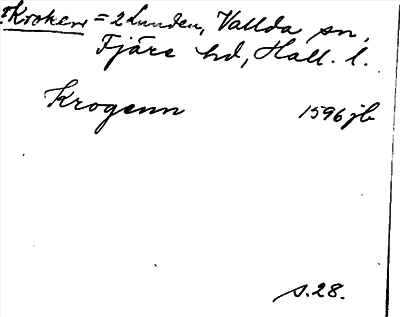 †Kroken = 2 Lunden, Vallda sn,
Fjäre hd, Hall. l.
Krogenn 1596 jb
s. 28.